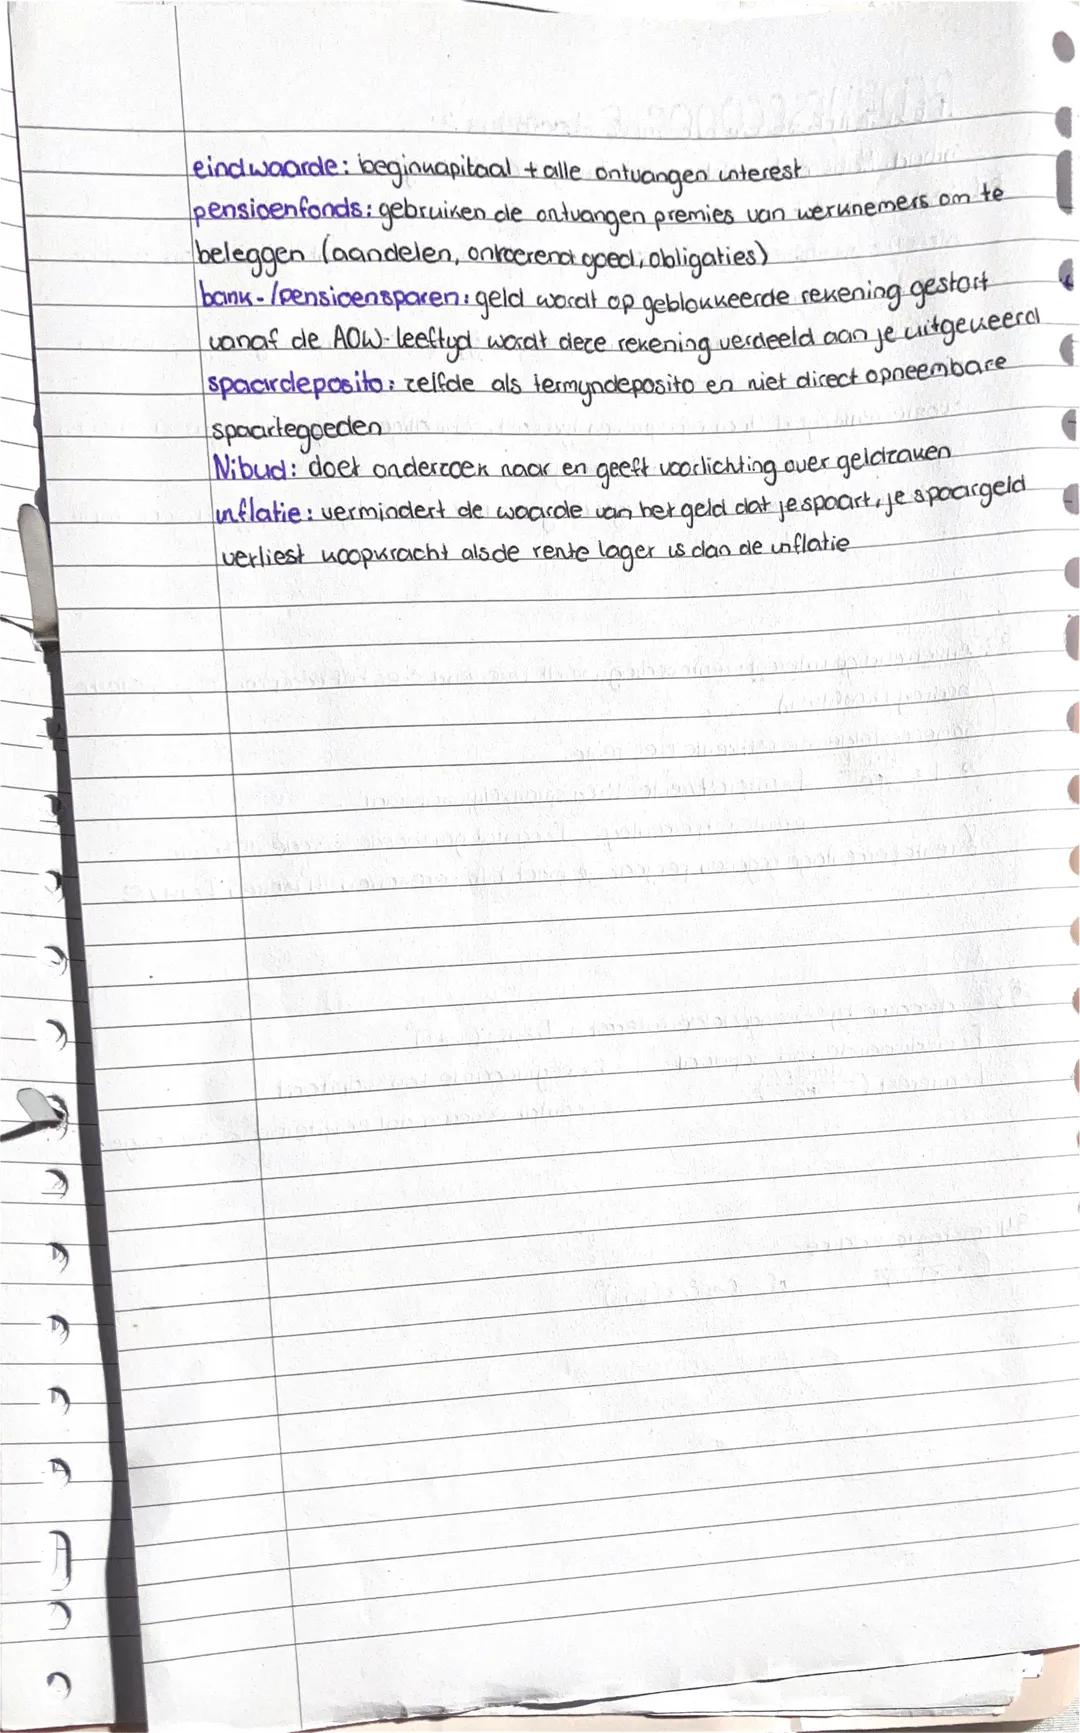 eindwaarde: beginkapitaal + alle ontvangen interest
pensioenfonds: gebruiken de ontvangen premies van werknemers om te
beleggen (aandelen, onroerend goed, obligaties)
bank-/pensioensparen: geld wordt op geblokkeerde rekening gestort
vanaf de AOW-leeftijd wordt deze rekening verdeeld aan je uitgekeerd
spaardeposito: zelfde als termijndeposito en niet direct opneembare
spaartegoeden
Nibud: doet onderzoek naar en geeft voorlichting over geldzaken
inflatie: vermindert de waarde van het geld dat je spaart, je spaargeld
verliest koopkracht als de rente lager is dan de inflatie